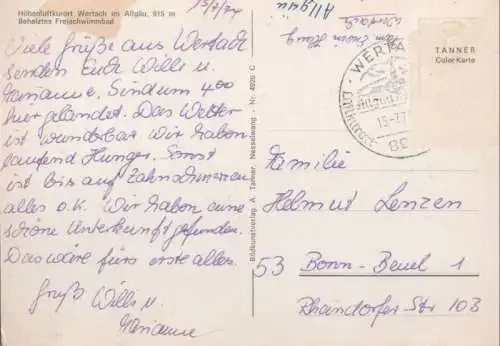 Höhenluftkurort Wertach im Allgäu, 915 m
Beheiztes Freischwimmbad
15/7/74
Viele Grüße aus Wertach
senden Euch Willi u.
Marianne. Sind um 4 00
hier gelandet. Das Wetter
ist wunderbar. Wir haben
laufend Hunger. Sonst
ist bis auf Zahnschmerzen
alles o.k. Wir haben eine
schöne Unterkunft gefunden.
Das wäre fürs erste alles.
Gruß Willi u.
Marianne
Bildkunstverlag A. Tanner, Nesselwang - Nr. 4926 C
Allgäu
Wertach
TANNER
Color-Karte
WERTA
Allgäu
Luftkurort
15.-7.7
Familie
Helmut Lenzen
53 Bonn-Beuel 1
Rheindorfer-Str 103